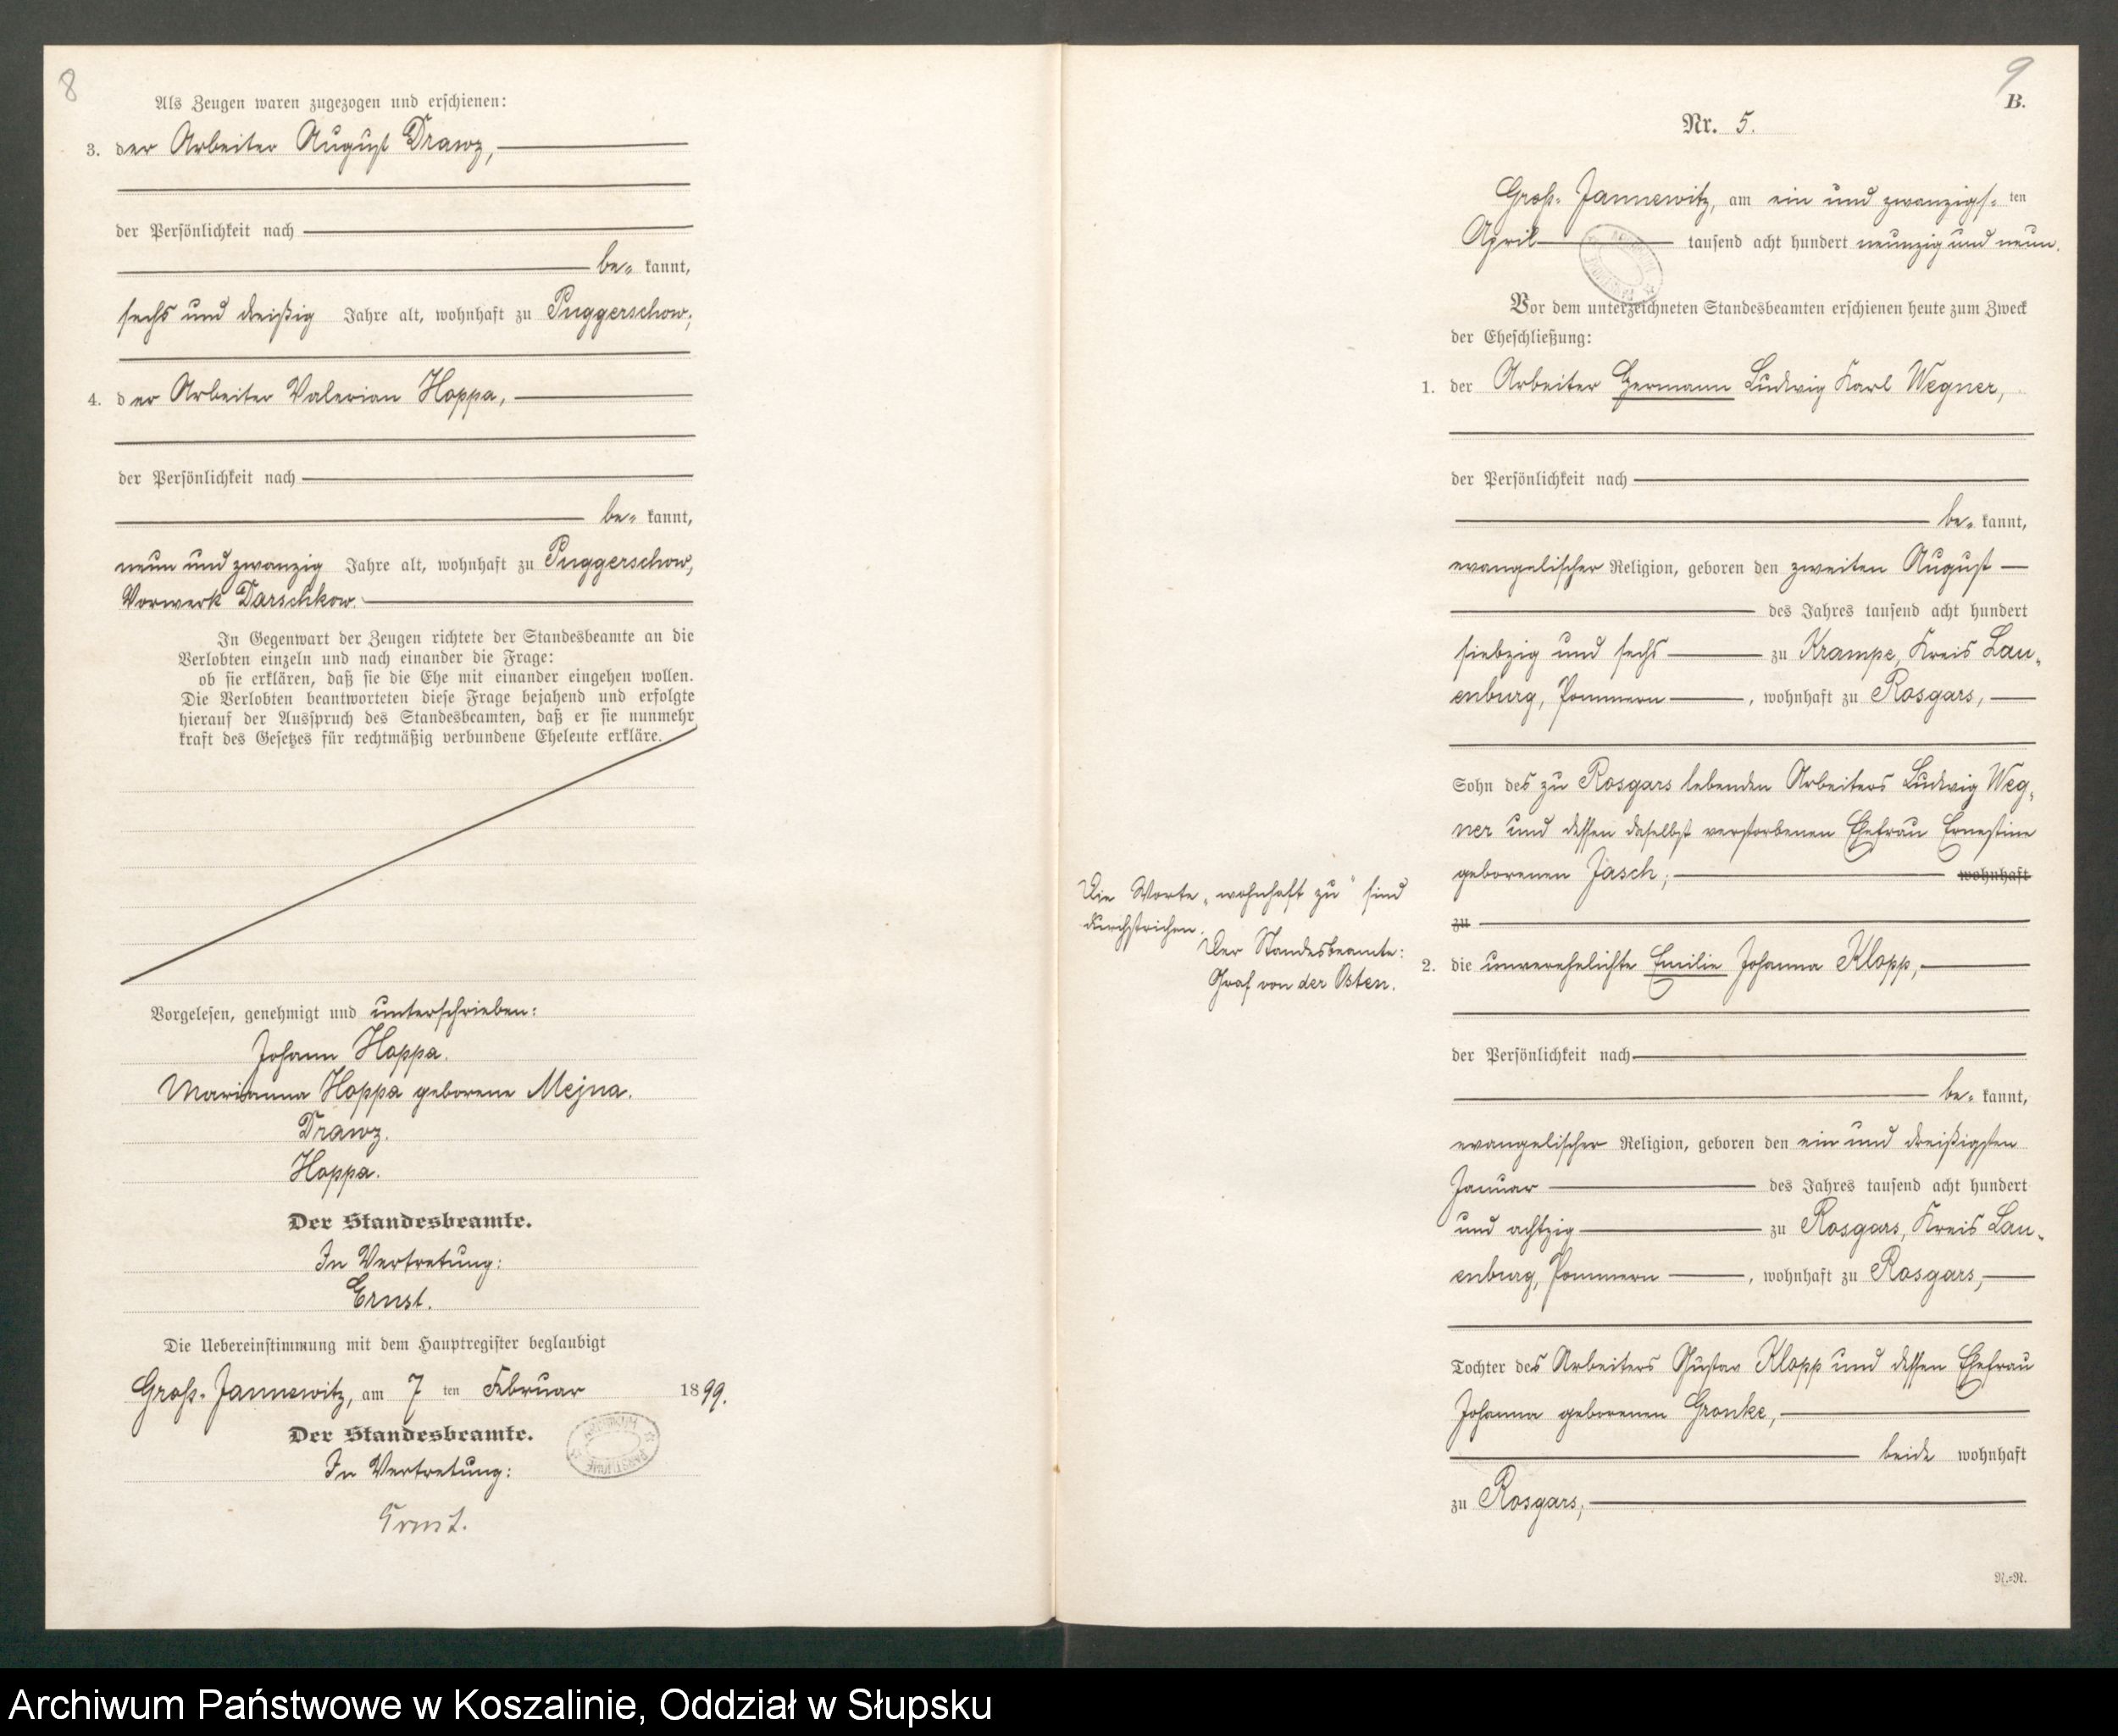 8
Als Zeugen waren zugezogen und erschienen:
3. der Arbeiter August Drawz,
der Persönlichkeit nach
be- kannt,
sechs und dreißig Jahre alt, wohnhaft zu Puggerschow;
4. der Arbeiter Valerian Hoppa,
der Persönlichkeit nach
be- kannt,
neun und zwanzig Jahre alt, wohnhaft zu Puggerschow,
Vorwerk Darschkow.
In Gegenwart der Zeugen richtete der Standesbeamte an die
Verlobten einzeln und nach einander die Frage:
ob sie erklären, daß sie die Ehe mit einander eingehen wollen.
Die Verlobten beantworteten diese Frage bejahend und erfolgte
hierauf der Ausspruch des Standesbeamten, daß er sie nunmehr
kraft des Gesetzes für rechtmäßig verbundene Eheleute erkläre.
Vorgelesen, genehmigt und unterschrieben:
Johann Hoppa.
Marianna Hoppa geborene Mejna.
Drawz.
Hoppa.
Der Standesbeamte.
In Vertretung:
Ernst.
Die Uebereinstimmung mit dem Hauptregister beglaubigt
Groß-Jannewitz, am 7 ten Februar 1899.
Der Standesbeamte.
In Vertretung:
Ernst.
9
B.
Nr. 5.
Groß-Jannewitz, am ein und zwanzigs- ten
April tausend acht hundert neunzig und neun.
Vor dem unterzeichneten Standesbeamten erschienen heute zum Zweck
der Eheschließung:
1. der Arbeiter Hermann Ludwig Karl Wegner,
der Persönlichkeit nach
be- kannt,
evangelischer Religion, geboren den zweiten August
des Jahres tausend acht hundert
siebzig und sechs zu Krampe, Kreis Lau-
enburg, Pommern, wohnhaft zu Rosgars,
Sohn des zu Rosgars lebenden Arbeiters Ludwig Weg-
ner und dessen daselbst verstorbenen Ehefrau Ernestine
geborenen Jasch; wohnhaft
zu
Die Worte „wohnhaft zu" sind
durchstrichen.
Der Standesbeamte:
Graf von der Osten.
2. die unverehelichte Emilie Johanna Klopp,
der Persönlichkeit nach
be- kannt,
evangelischer Religion, geboren den ein und dreißigsten
Januar des Jahres tausend acht hundert
und achtzig zu Rosgars, Kreis Lau-
enburg, Pommern, wohnhaft zu Rosgars,
Tochter des Arbeiters Gustav Klopp und dessen Ehefrau
Johanna geborenen Gronke,
beide wohnhaft
zu Rosgars;
N.=N.
Archiwum Państwowe w Koszalinie, Oddział w Słupsku